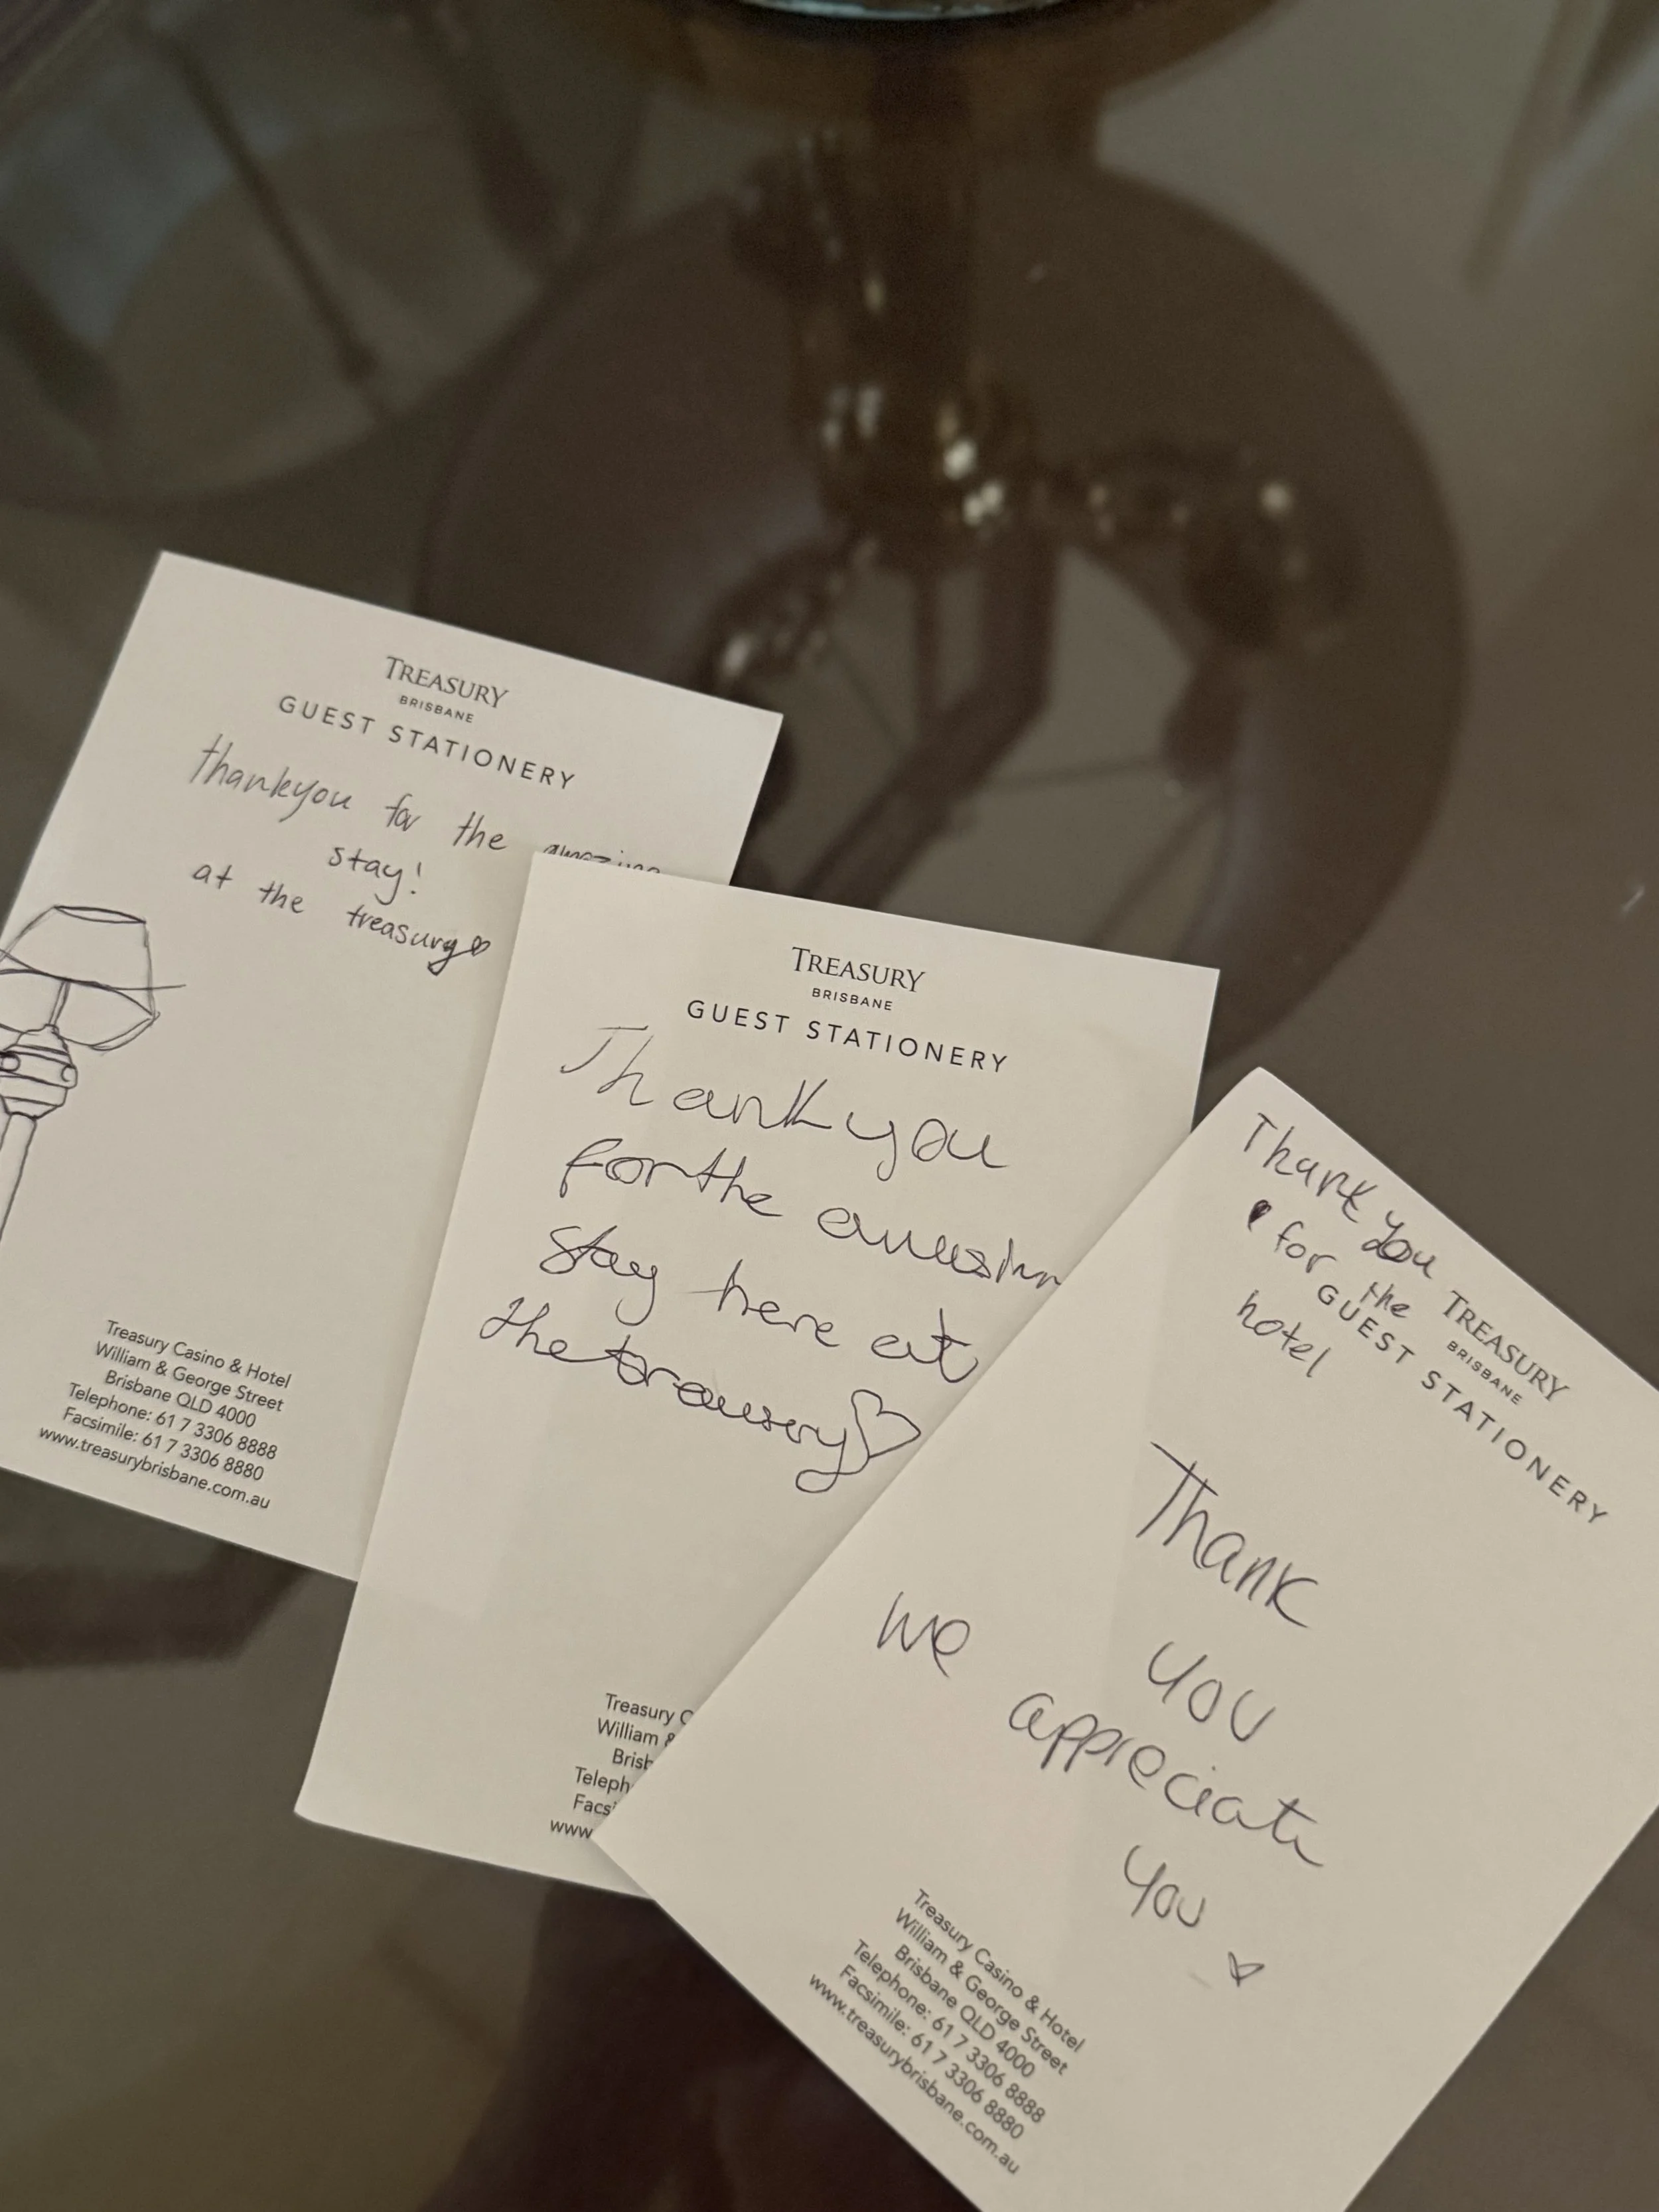 TREASURY
BRISBANE
GUEST STATIONERY
thankyou for the amazing
stay!
at the treasury
Treasury Casino & Hotel
William & George Street
Brisbane QLD 4000
Telephone: 61 7 3306 8888
Facsimile: 61 7 3306 8880
www.treasurybrisbane.com.au
TREASURY
BRISBANE
GUEST STATIONERY
Thankyou
for the
stay here at
the
Treasury C
William &
Brisb
Teleph
Facsi
www
Thank you
for the
hotel
TREASURY
BRISBANE
GUEST STATIONERY
Thank
you
we appreciate
you
Treasury Casino & Hotel
William & George Street
Brisbane QLD 4000
Telephone: 61 7 3306 8888
Facsimile: 61 7 3306 8880
www.treasurybrisbane.com.au